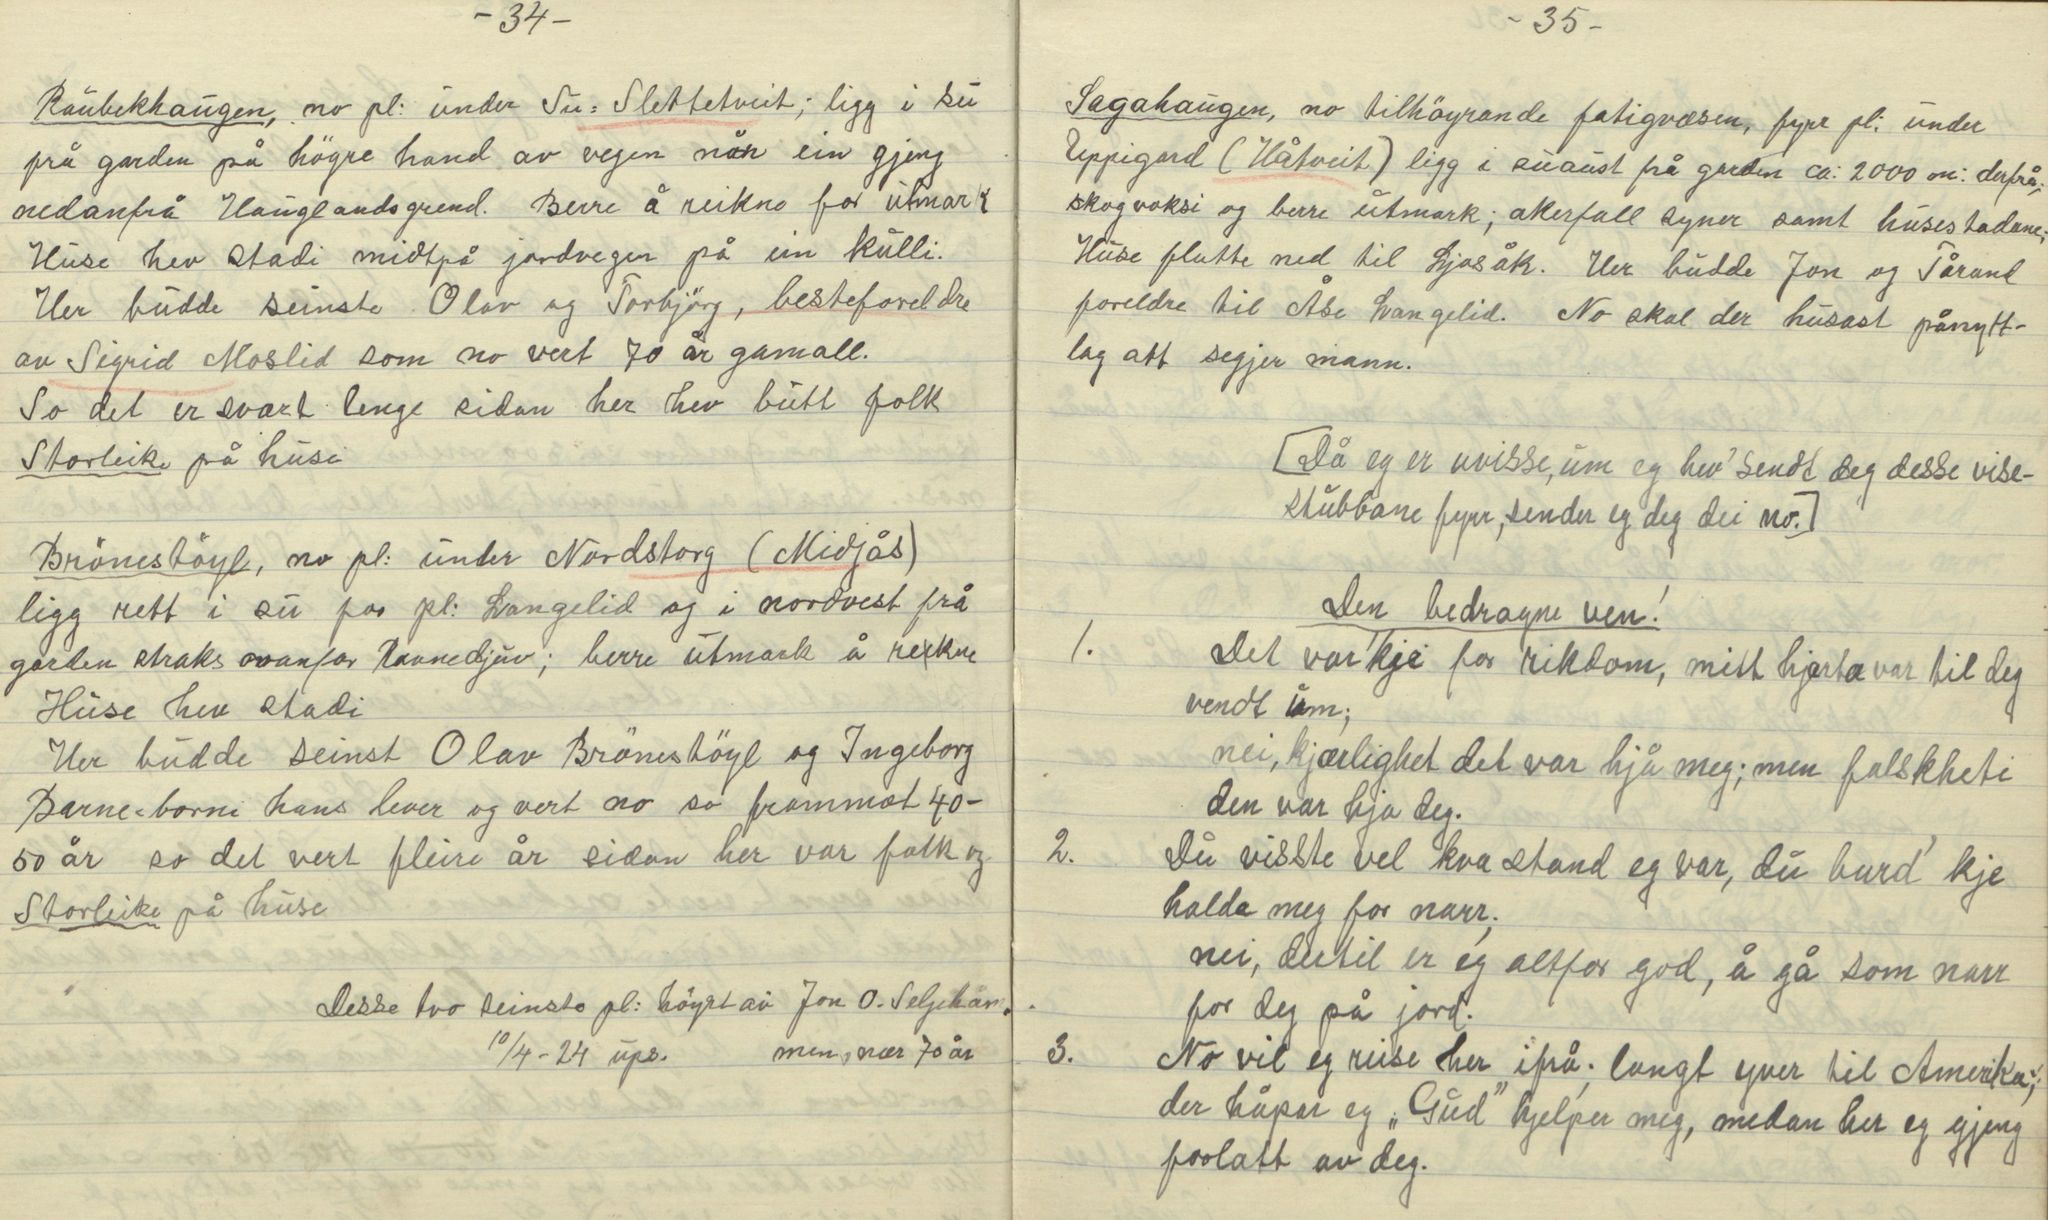 -34-
Räubekhaugen, no pl: under Su=Slettetveit; ligg i su
frå garden på högre hand av vegen når ein gjeng
nedanfrå Hauglandsgrend. Berre å reikne for utmark
Huse hev stadi midtpå jordvegen på ein kulli.
Her budde seinste Olav og Torbjörg, besteforeldre
av Sigrid Moslid som no vert 70 år gamall.
So det er svært lenge sidan her hev butt folk
Storleike på husi
Brönestöyl, no pl: under Nordstorg (Midjås)
ligg rett i su for pl: Langelid og i nordvest frå
garden straks ovanfor Ravnedjuv; berre utmark å reikne
Huse hev stadi
Her budde seinst Olav Brönestöyl og Ingeborg
Barne=borni hans lever og vert no so frammot 40-
50 år so det vert fleire år sidan her var folk og
Storleike på huse
Desse tvo seinste pl: höyrt av Jon O. Seljehåm.
10/4-24 ups. men, nær 70 år
-35-
Sagahaugen, no tilhöyrande fatigvæsen, fyrr pl: under
Uppigard (Håtveit) ligg i suaust frå garden ca: 2000 m: derfrå;
skogvoksi og berre utmark; akerfall syner samt husestadane;
Huse flutte ned til Ljosåk. Her budde Jon og Tårand
foreldre til Åse Langelid. No skal der husast pånytt-
lag att segjer mann.
[Då eg er uvisse, um eg hev' sendt deg desse vise-
stubbane fyrr, sender eg deg dei no.]
Den bedragne ven!
1. Det var'kje for rikdom, mitt hjarta var til deg
vendt um;
nei, kjærlighet det var hjå meg; men falskheti
den var hja deg.
2. Du visste vel kva stand eg var, du burd' kje
halda meg for narr;
nei, dertil er eg altfor god, å gå som narr
for deg på jord.
3. No vil eg reise her ifrå; langt yver til Amerika;
der håpar eg „Gud" hjelper meg, medan her eg gjeng
forlatt av deg.